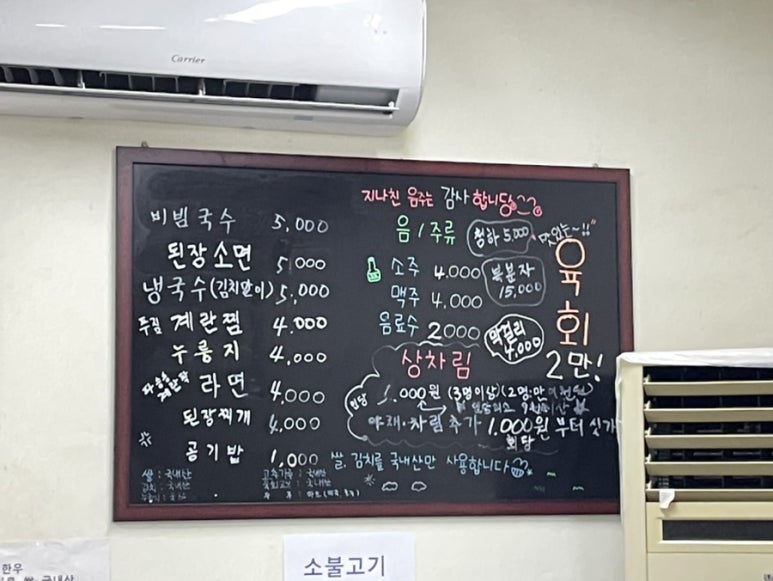 Carrier
지나친 음주는 감사합니당
비빔국수 5,000
된장소면 5,000
냉국수(김치말이) 5,000
계란찜 4.000
누룽지 4,000
라면 4,000
된장찌개 4,000
공기밥 1,000
음/주류
청하 5,000
소주 4.000
맥주 4,000
음료수 2000
복분자 15,000
막걸리 4,000
맛있는~!!
육회
2만!
상차림
000원 (3명이상)(2명:만
야채·차림추가 1,000원 부터 싯가
쌀, 김치를 국내산만 사용합니다
쌀 : 국내산
김치 : 국내산
고추가루 : 국내산
한우
소불고기